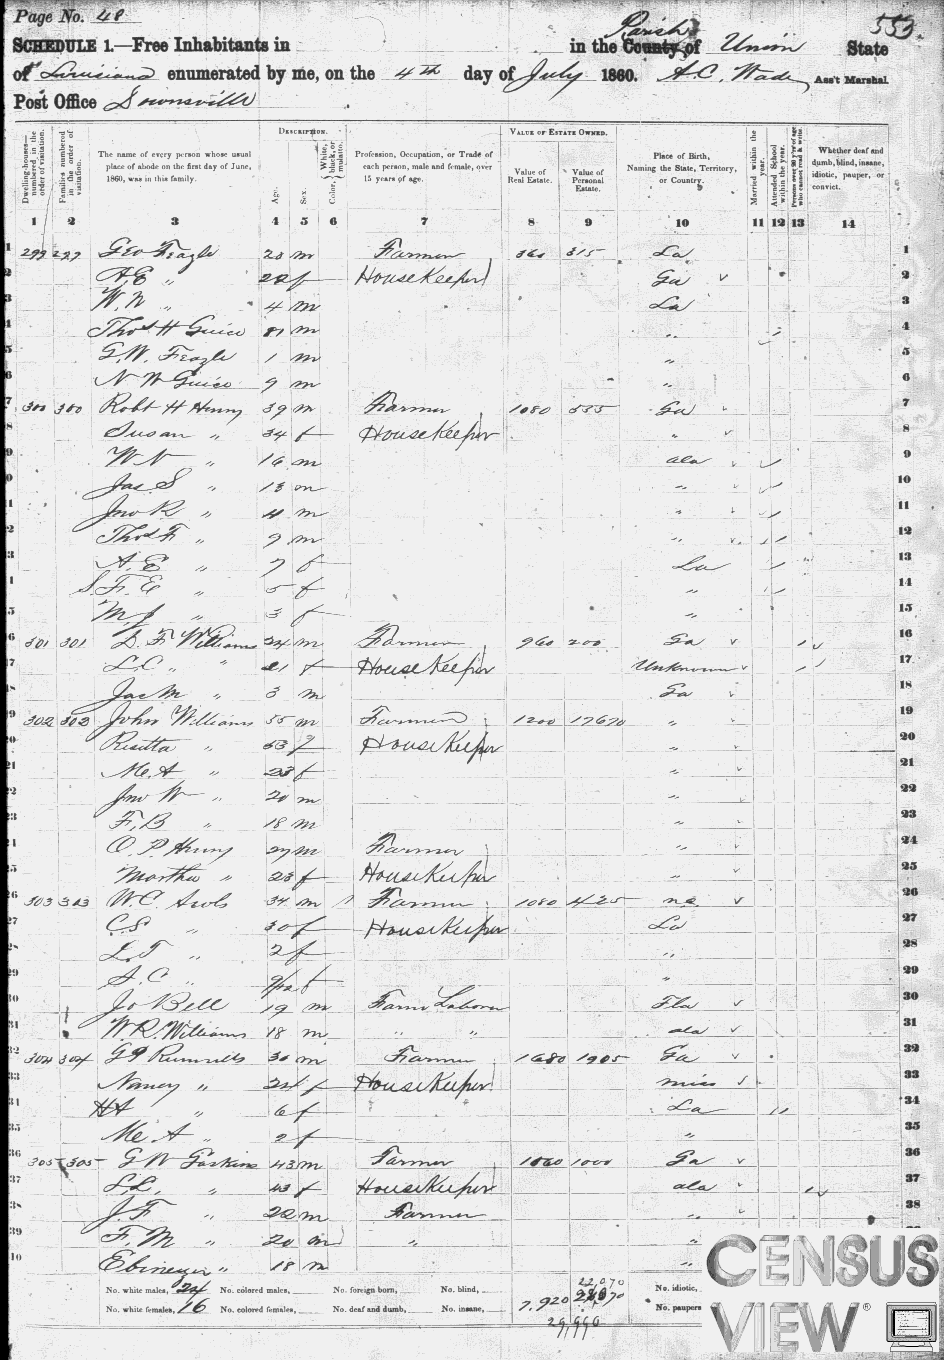 Page No. 48
553
SCHEDULE 1.—Free Inhabitants in in the County of Parish Union State
of Louisiana enumerated by me, on the 4th day of July 1860. A.C. Wade Ass't Marshal.
Post Office Downsville
DESCRIPTION. VALUE OF ESTATE OWNED.
Dwelling-houses—numbered in the order of visitation. Families numbered in the order of visitation. The name of every person whose usual place of abode on the first day of June, 1860, was in this family. Age. Sex. Color, White, black, or mulatto. Profession, Occupation, or Trade of each person, male and female, over 15 years of age. Value of Real Estate. Value of Personal Estate. Place of Birth, Naming the State, Territory, or Country. Married within the year. Attended School within the year. Persons over 20 y'rs of age who cannot read & write. Whether deaf and dumb, blind, insane, idiotic, pauper, or convict.
1 2 3 4 5 6 7 8 9 10 11 12 13 14
1 299 Geo Feagle m Farmer 315 La 1
2 A.E " f HouseKeeper Ga 2
3 W.N " 4 m La 3
4 Thos H Guice m " 4
5 G.W. Feagle 1 m " 5
6 N W Guice 9 m " 6
7 300 300 Robt H Henry 39 m Farmer 1080 535 Ga 7
8 Susan " 34 f HouseKeeper " 8
9 W N " 16 m ala 9
10 Jas. S " 13 m " 10
11 Jno R " 11 m " 11
12 Thos F " 9 m " 12
13 A. E " 7 f La 13
14 S.F. E " 5 f " 14
15 M. J " 3 f " 15
16 301 301 D. F Williams 24 m Farmer 960 200 Ga 16
17 L.C. " 21 f HouseKeeper Unknown 17
18 Jas M " 3 m Ga 18
19 302 302 John Williams 55 m Farmer 1200 17670 " 19
20 Risitta " 53 f HouseKeeper " 20
21 M.A " 23 f " 21
22 Jno W " 20 m " 22
23 F. B " 18 m " 23
24 O. P. Henry 27 m Farmer " 24
25 Martha " 23 f HouseKeeper " 25
26 303 303 W.C. 34 m Farmer 1080 425 26
27 C.S " 30 f HouseKeeper La 27
28 L.T " 2 f " 28
29 S. C " 9/12 f " 29
30 Jo Bell 19 m Farm Laborer Fla 30
31 W.R. Williams 18 m " " ala 31
32 304 304 30 m Farmer 1680 1905 Ga 32
33 Nancy " 24 f HouseKeeper miss 33
34 HA " 6 f La 34
35 M. A " 2 f " 35
36 305 305 G W Gaskins 43 m Farmer 1060 1000 Ga 36
37 S.L. " 43 f HouseKeeper ala 37
38 J. F " 22 m Farmer " 38
39 F. M " 20 m " "
40 Ebinezer " 18 m "
No. white males, 24 No. colored males, No. foreign born, No. blind, 22,070 No. idiotic,
No. white females, 16 No. colored females, No. deaf and dumb, No. insane, 7,920 No. paupers
29,990
CENSUS
VIEW®